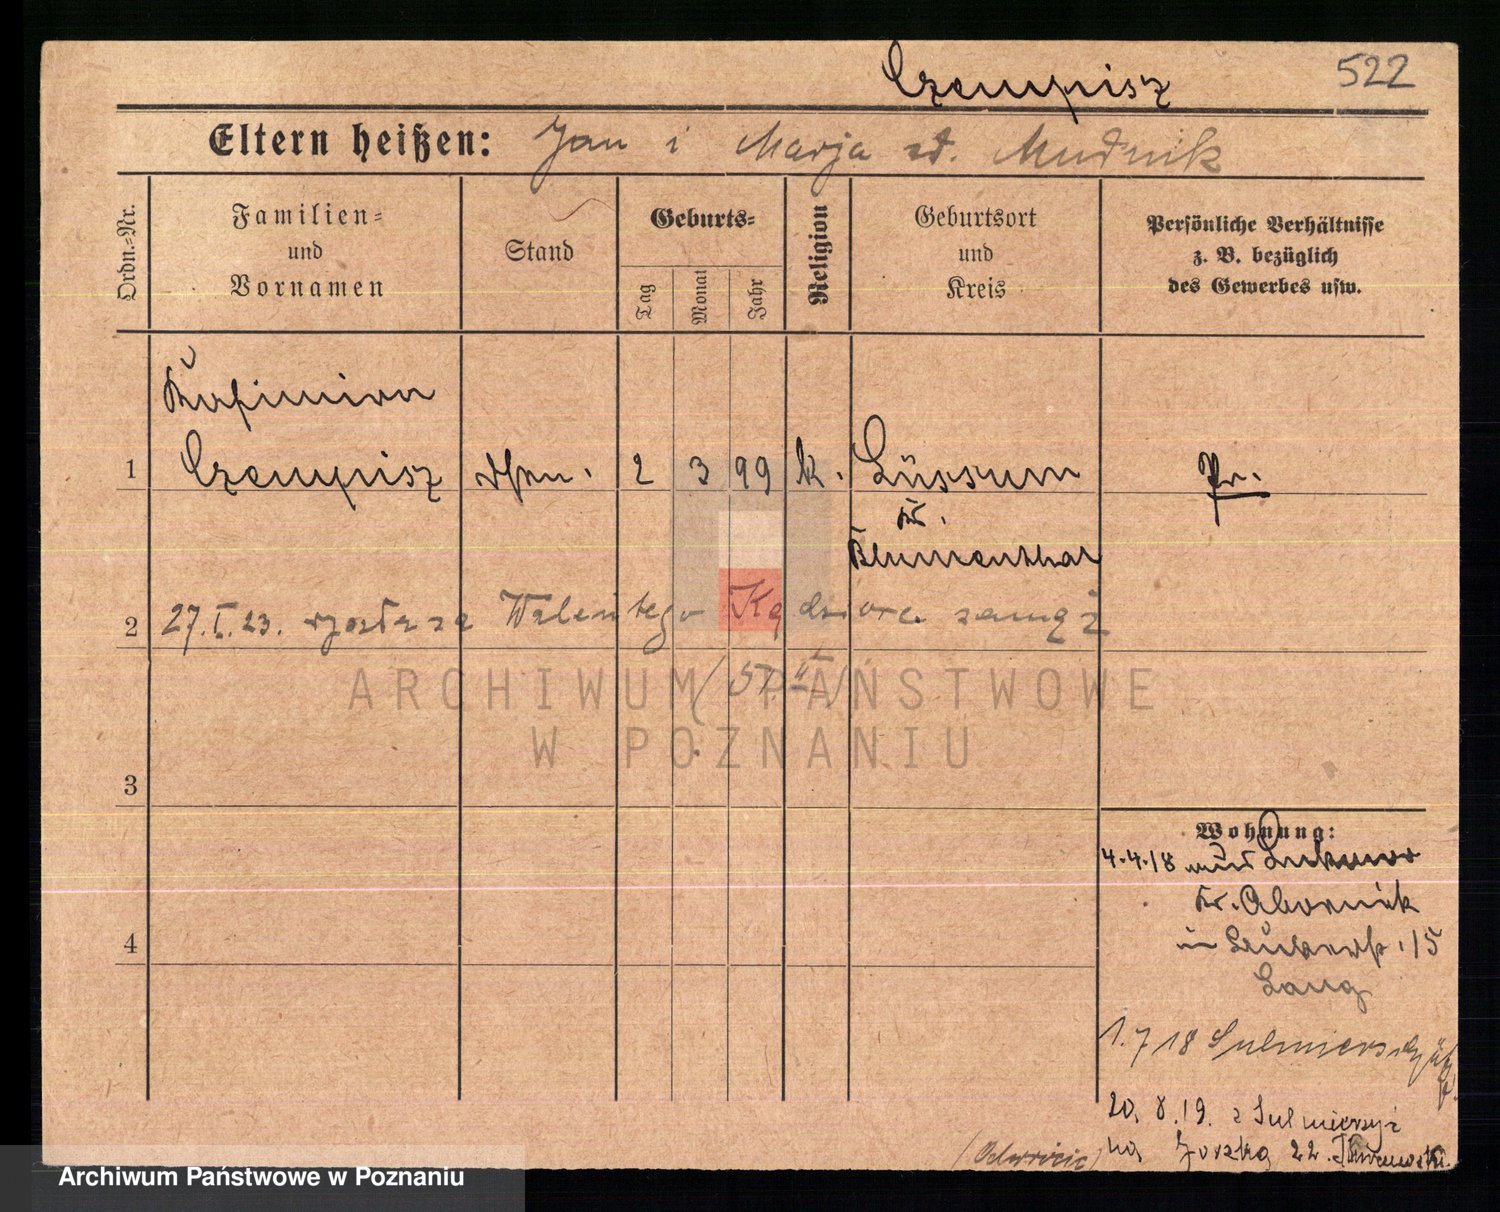 Czempisz 522
Eltern heißen: Jan i Marja zd. Mudnik
Ordn.-Nr.
Familien-
und
Vornamen
Stand
Geburts-
Tag
Monat
Jahr
Religion
Geburtsort
und
Kreis
Persönliche Verhältnisse
z. B. bezüglich
des Gewerbes usw.
Kasimira
1 Czempisz 2 3 99 k. Lüssum Pr.
Kr.
Blumenthal
2 27.I.23. wyszła za Walentego Kędziora zamąż
3
Wohnung:
4.4.18
Kr. Obornik
in 15
Lang
4
1.7.18
20.8.19. z Sulmierzyc
na 22.
ARCHIWUM PAŃSTWOWE
W POZNANIU
Archiwum Państwowe w Poznaniu